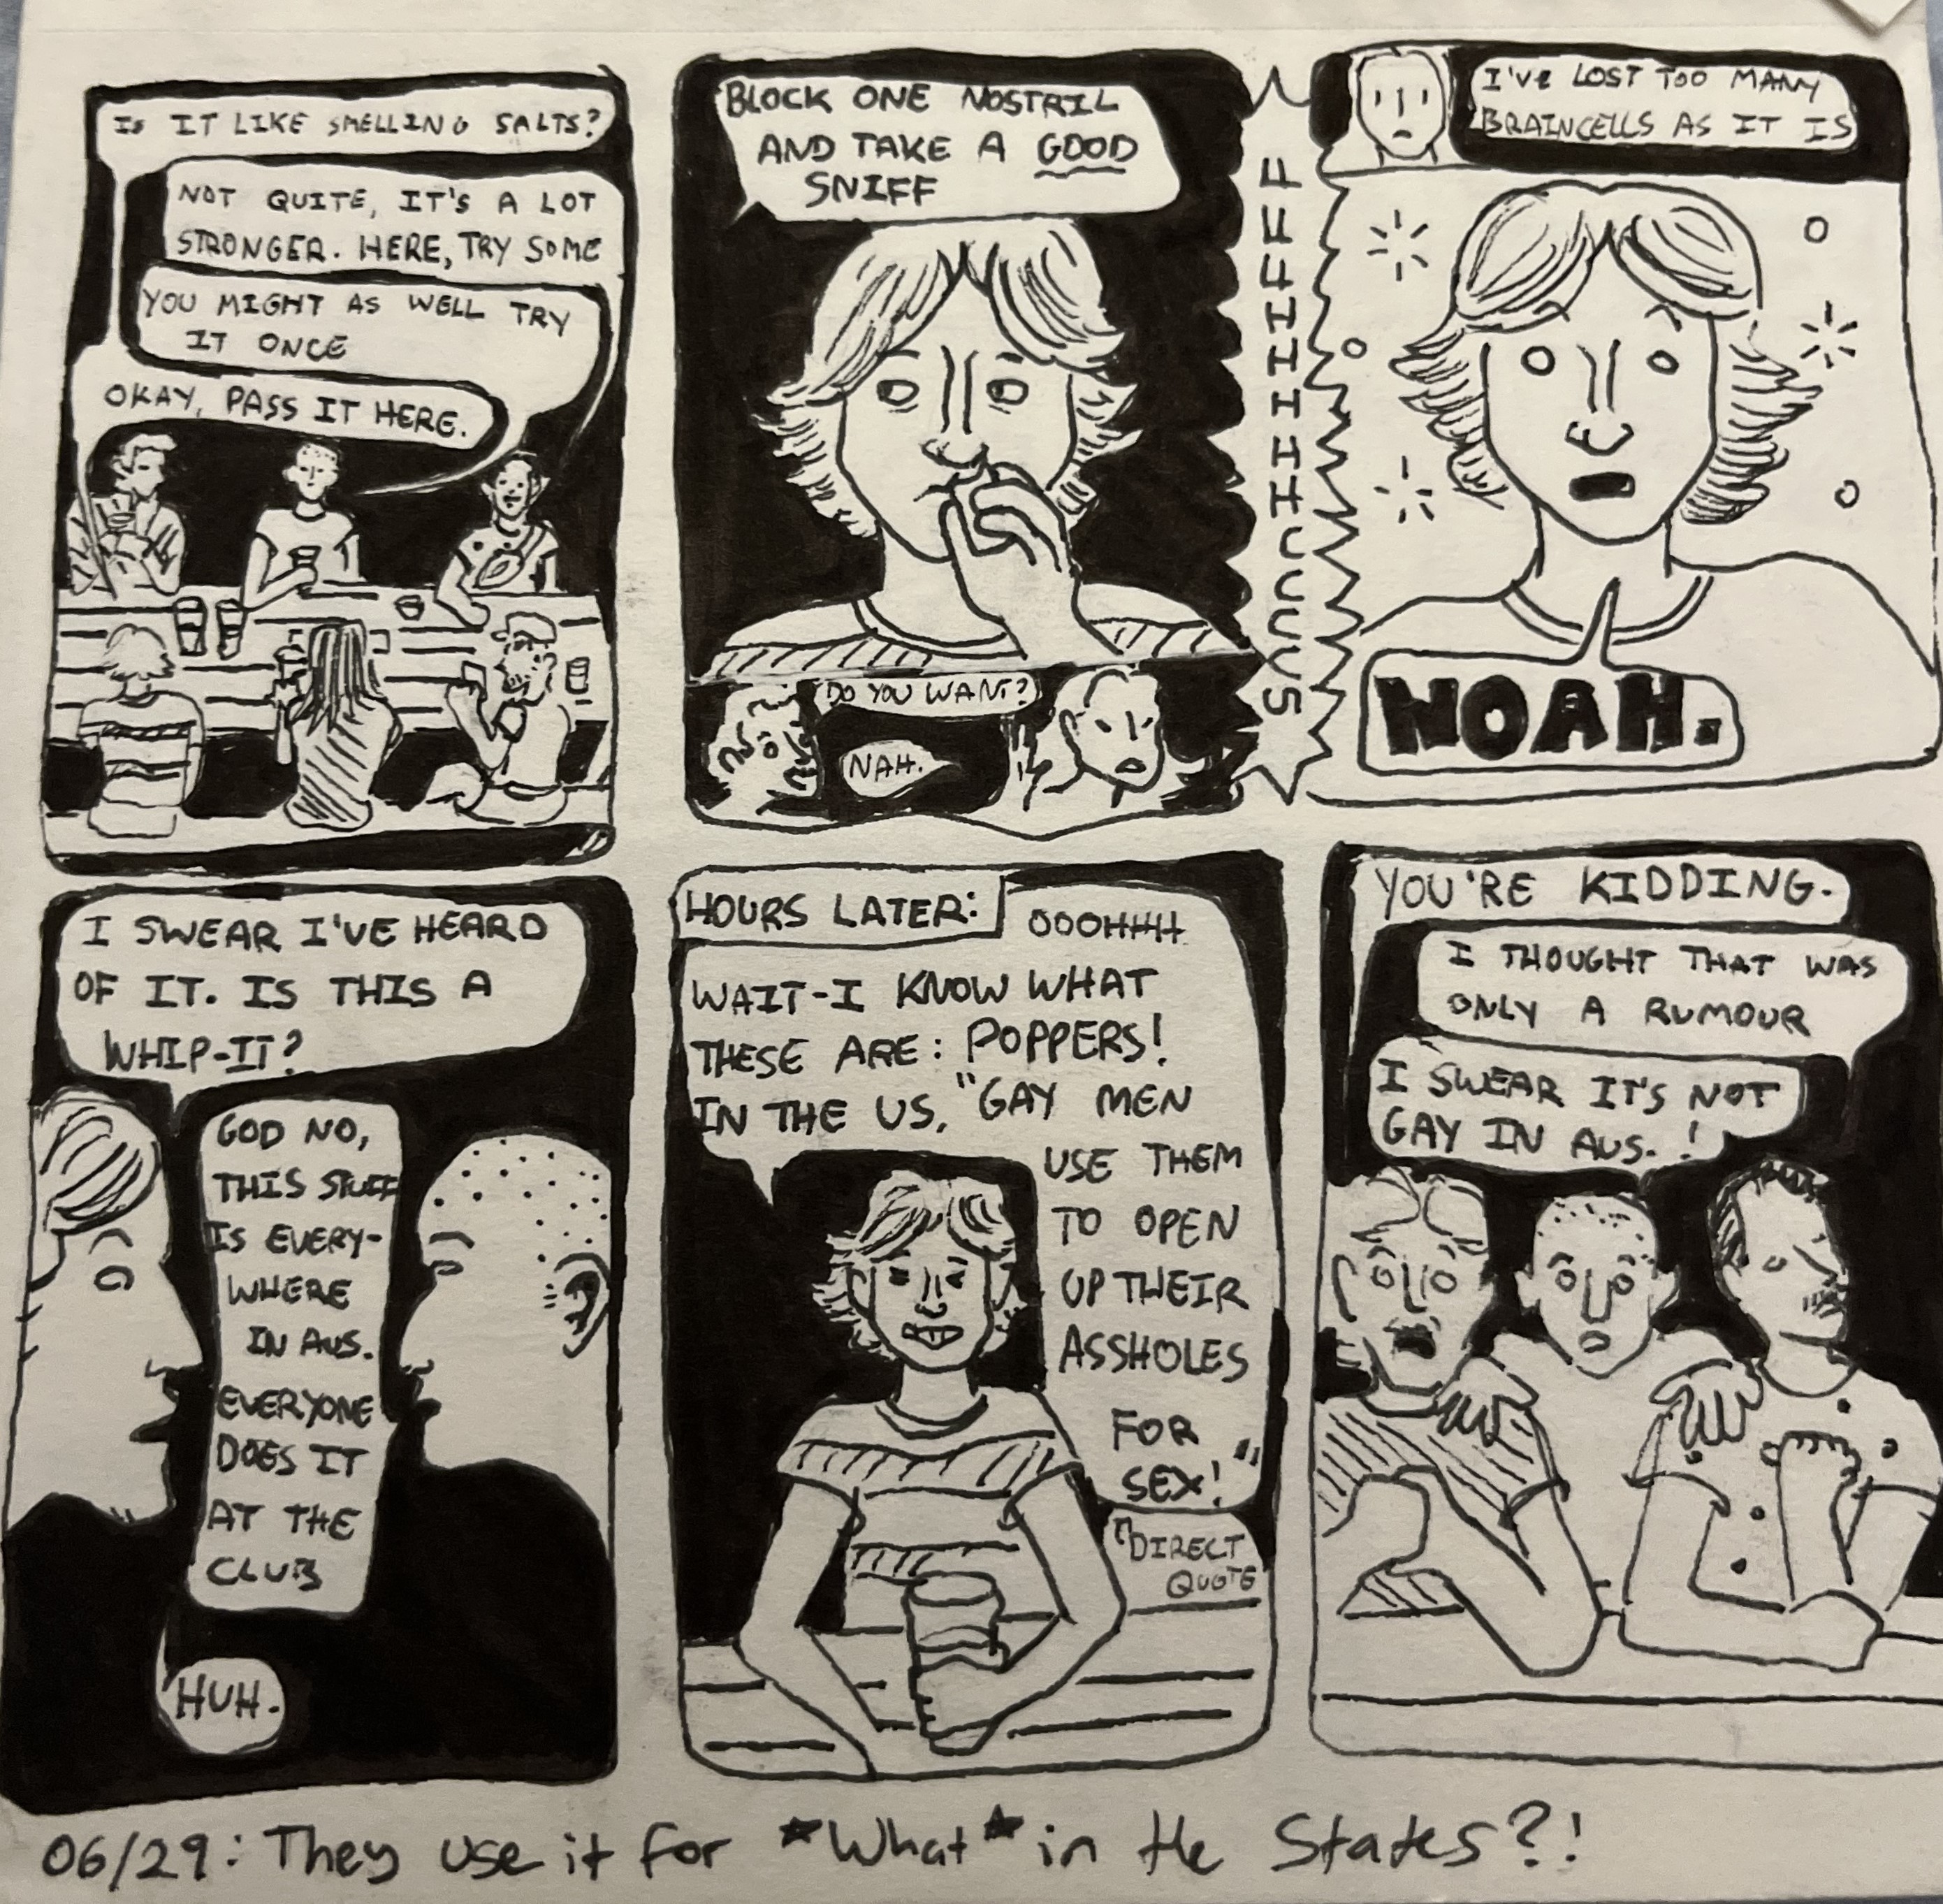 IS IT LIKE SMELLING SALTS?
NOT QUITE, IT'S A LOT
STRONGER. HERE, TRY SOME
YOU MIGHT AS WELL TRY
IT ONCE
OKAY, PASS IT HERE.
BLOCK ONE NOSTRIL
AND TAKE A GOOD
SNIFF
DO YOU WANT?
NAH.
FFFHHHHHCCCCS
I'VE LOST TOO MANY
BRAINCELLS AS IT IS
WOAH.
I SWEAR I'VE HEARD
OF IT. IS THIS A
WHIP-IT?
GOD NO,
THIS STUFF
IS EVERY-
WHERE
IN AUS.
EVERYONE
DOES IT
AT THE
CLUB
HUH.
HOURS LATER:
OOOHHH
WAIT-I KNOW WHAT
THESE ARE: POPPERS!
IN THE US, "GAY MEN
USE THEM
TO OPEN
UP THEIR
ASSHOLES
FOR
SEX!"
DIRECT
QUOTE
YOU'RE KIDDING.
I THOUGHT THAT WAS
ONLY A RUMOUR
I SWEAR IT'S NOT
GAY IN AUS.!
06/29: They use it for *What* in the States?!